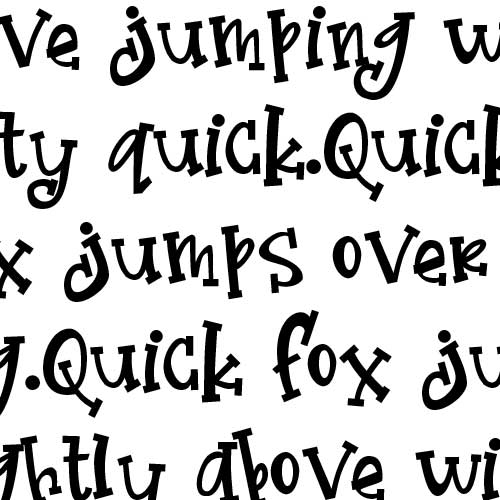 ve jumping w
ty quick.Quick
x jumps over
g.Quick fox ju
ghtly above wi